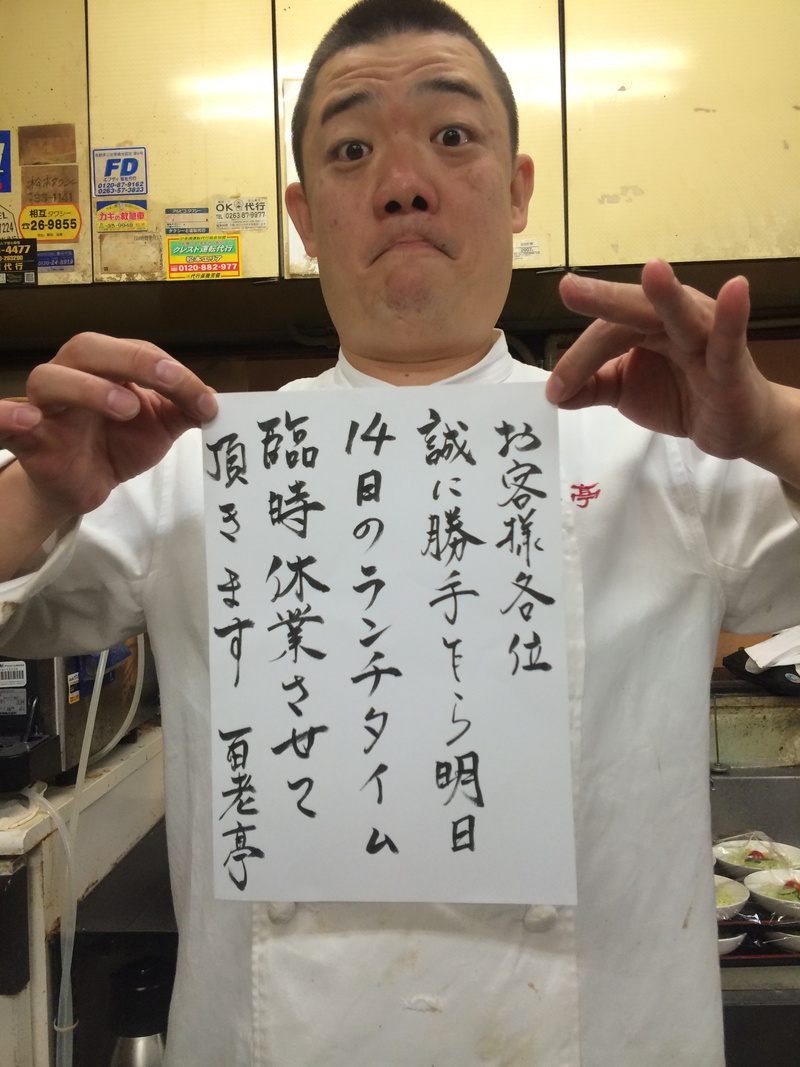 お客様各位
誠に勝手乍ら明日
14日のランチタイム
臨時休業させて
頂きます 百老亭
亭
FD
0120-87-9162
0263-57-3833
相互タクシー
☎26-9855
カギの救急車
OK代行
TEL 0263-87-9977
アルピコタクシー
クレスト運転代行
松本エリア
0120-882-977
4477
代行